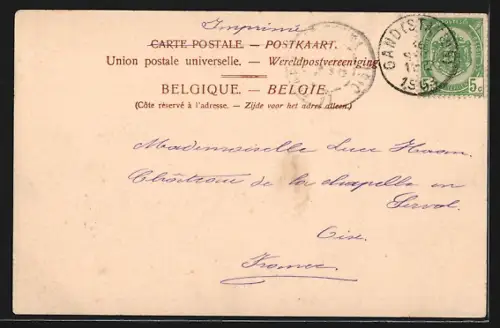 Imprimé
CARTE POSTALE. — POSTKAART.
Union postale universelle. — Wereldpostvereeniging
BELGIQUE. — BELGIE.
(Côte réservé à l'adresse. - Zijde voor het adres alleen.)
GAND (ST
5c 5c
Mademoiselle
Château de la chapelle en
Serval.
Oise.
France.